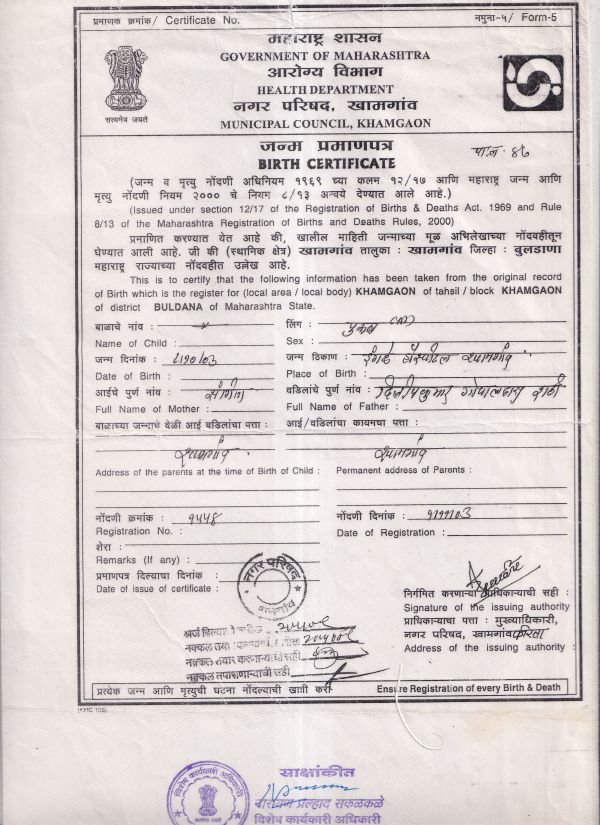 प्रमाणक क्रमांक/ Certificate No. नमुना-५/ Form-5
महाराष्ट्र शासन
GOVERNMENT OF MAHARASHTRA
आरोग्य विभाग
HEALTH DEPARTMENT
नगर परिषद, खामगांव
MUNICIPAL COUNCIL, KHAMGAON
सत्यमेव जयते
जन्म प्रमाणपत्र
BIRTH CERTIFICATE
(जन्म व मृत्यु नोंदणी अधिनियम १९६९ च्या कलम १२/१७ आणि महाराष्ट्र जन्म आणि
मृत्यु नोंदणी नियम २००० चे नियम ८/१३ अन्वये देण्यात आले आहे.)
(Issued under section 12/17 of the Registration of Births & Deaths Act. 1969 and Rule
8/13 of the Maharashtra Registration of Births and Deaths Rules, 2000)
प्रमाणित करण्यात येत आहे की, खालील माहिती जन्माच्या मूळ अभिलेखाच्या नोंदवहीतून
घेण्यात आली आहे. जी की (स्थानिक क्षेत्र) खामगांव तालुका : खामगांव जिल्हा : बुलडाणा
महाराष्ट्र राज्याच्या नोंदवहीत उल्लेख आहे.
This is to certify that the following information has been taken from the original record
of Birth which is the register for (local area / local body) KHAMGAON of tahsil / block KHAMGAON
of district BULDANA of Maharashtra State.
बाळाचे नांव : लिंग :
Name of Child : Sex :
जन्म दिनांक : जन्म ठिकाण :
Date of Birth : Place of Birth :
आईचे पुर्ण नांव : वडिलांचे पुर्ण नांव :
Full Name of Mother : Full Name of Father :
बाळाच्या जन्माचे वेळी आई वडिलांचा पत्ता : आई/वडिलांचा कायमचा पत्ता :
खामगांव खामगांव
Address of the parents at the time of Birth of Child : Permanent address of Parents :
नोंदणी क्रमांक : १५५४ नोंदणी दिनांक :
Registration No. : Date of Registration :
शेरा :
Remarks (If any) :
प्रमाणपत्र दिल्याचा दिनांक :
Date of issue of certificate :
नगर परिषद
खामगांव
निर्गमित करणाऱ्या प्राधिकाऱ्याची सही :
Signature of the issuing authority
प्राधिकाऱ्याचा पत्ता : मुख्याधिकारी,
नगर परिषद, खामगांव करिता
Address of the issuing authority :
नक्कल तयार करणाऱ्याची सही
नक्कल तपासणाऱ्याची सही
प्रत्येक जन्म आणि मृत्युची घटना नोंदल्याची खात्री करा Ensure Registration of every Birth & Death
साक्षांकीत
नारायण प्रल्हाद सकळकळे
विशेष कार्यकारी अधिकारी
विशेष कार्यकारी अधिकारी